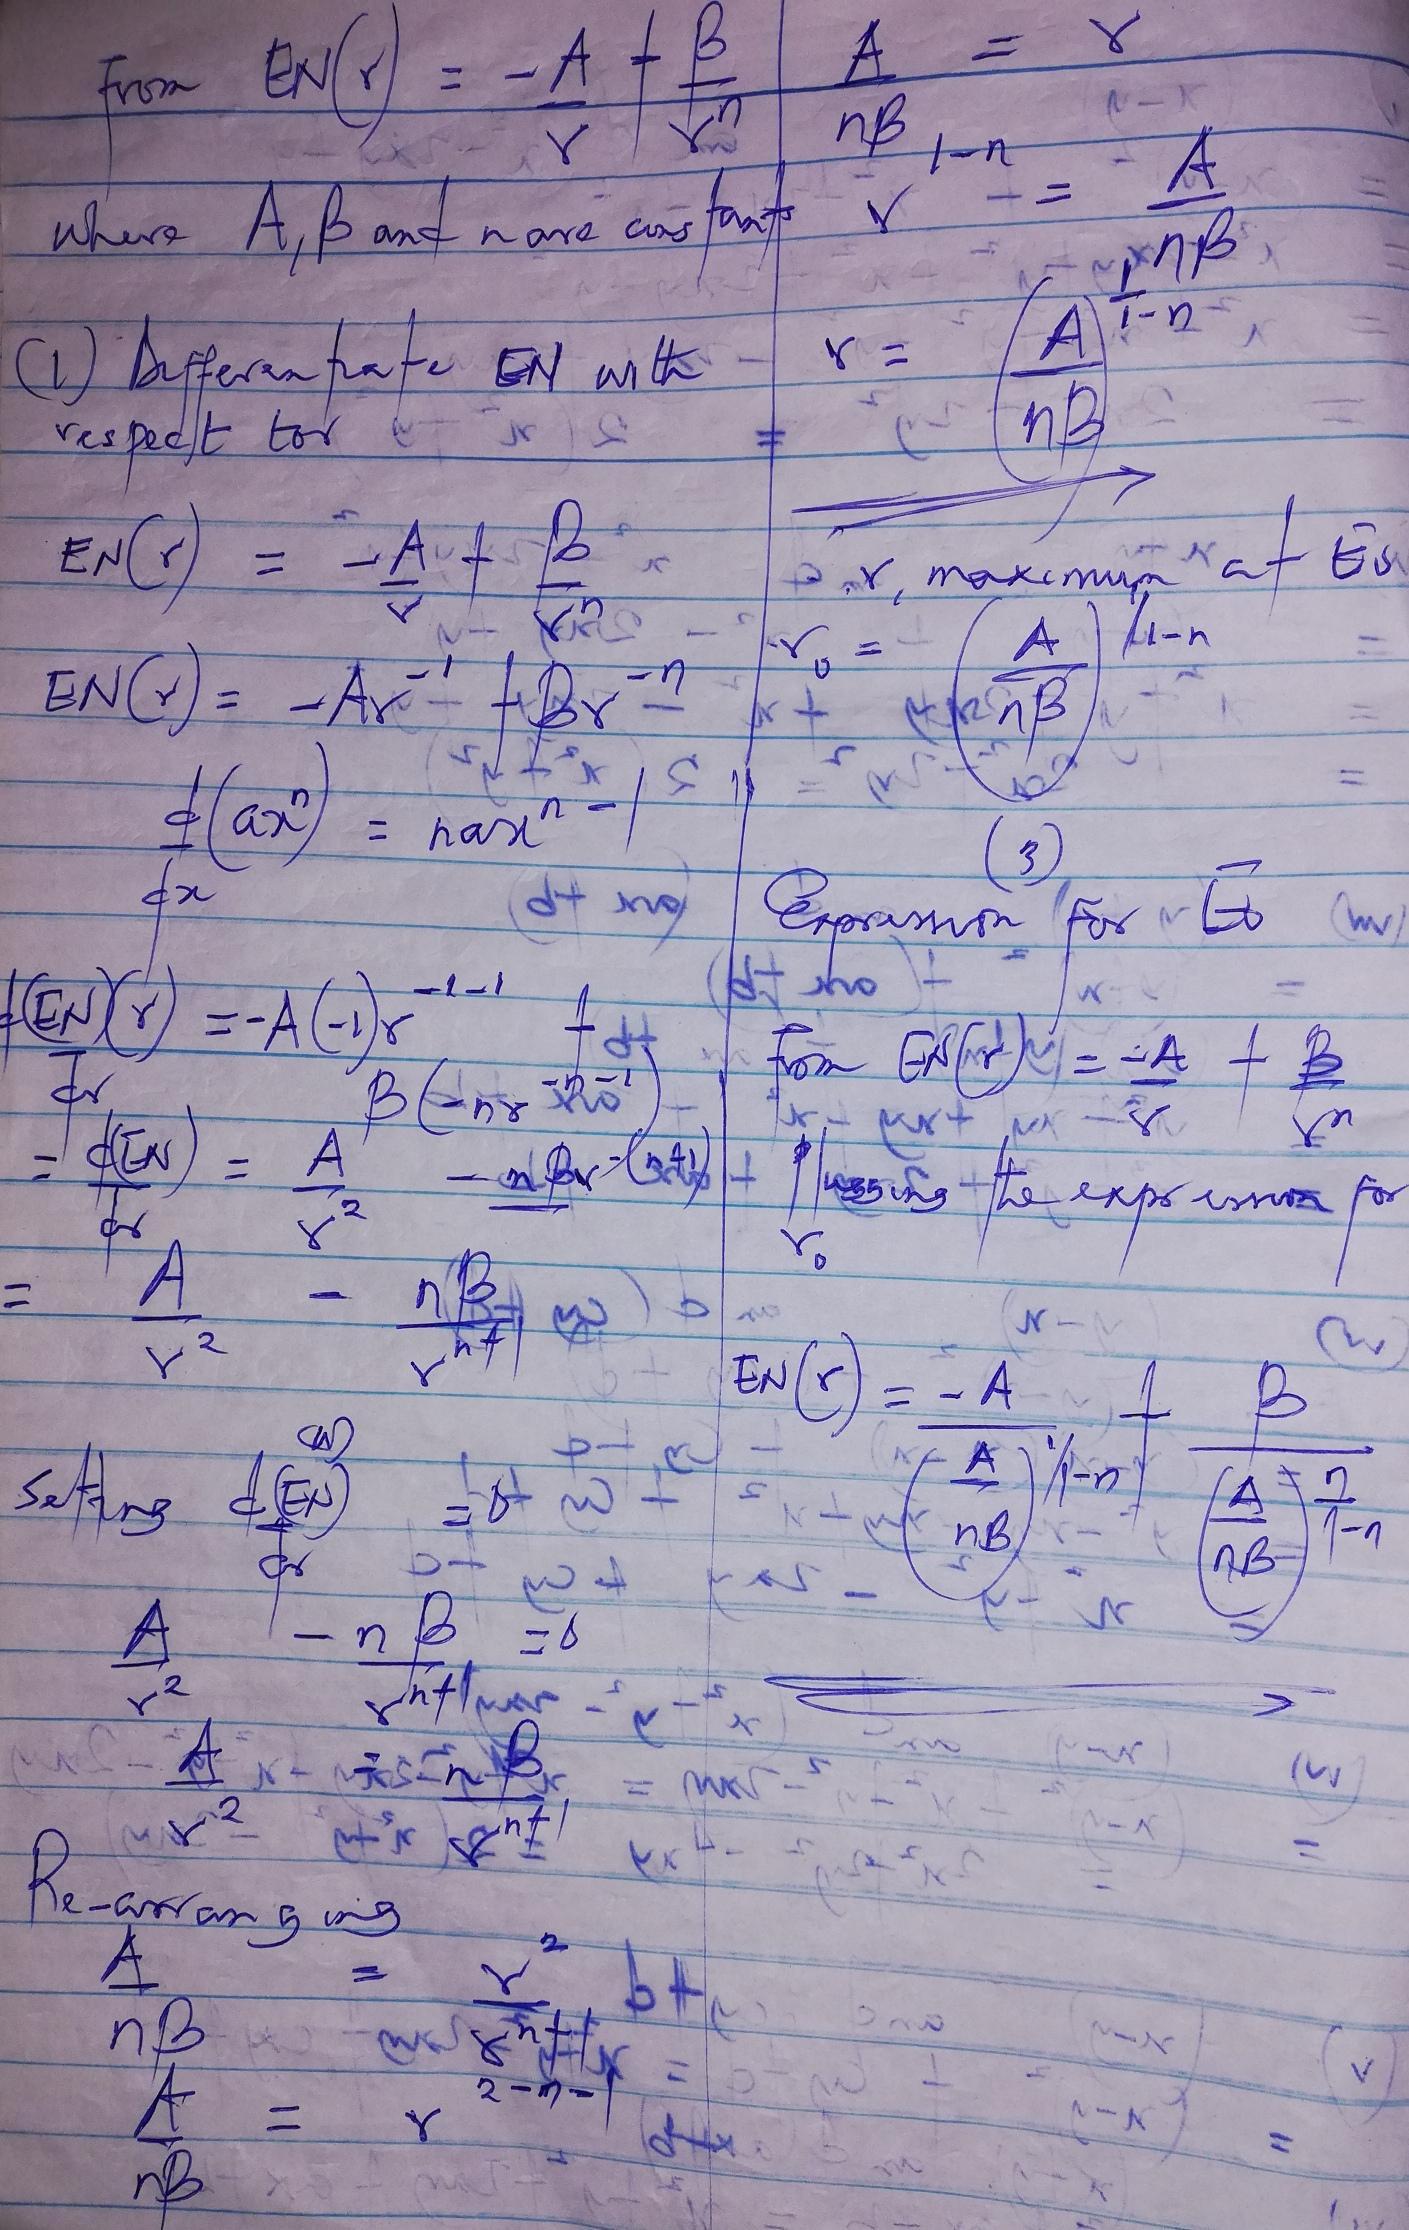 From EN(r) = -A/r + B/r^n
where A, B and n are constants
(1) Differentiate EN with
respect to r
EN(r) = -A/r + B/r^n
EN(r) = -Ar^-1 + Br^-n
d/dx (ax^n) = nax^n-1
d(EN)(r)/dr = -A(-1)r^-1-1 +
B(-nr^-n-1)
= d(EN)/dr = A/r^2 - nBr^-(n+1)
= A/r^2 - nB/r^n+1
Setting d(EN)/dr = 0
A/r^2 - nB/r^n+1 = 0
A/r^2 = nB/r^n+1
Re-arranging
A/nB = r^2/r^n+1
A/nB = r^2-n-1
A/nB = r
r^1-n = A/nB
r = (A/nB)^1/1-n
r, maximum at Eo
r₀ = (A/nB)^1/1-n
(3)
Expression for Eo
From EN(r) = -A/r + B/r^n
using the expression for
r₀
EN(r) = -A/(A/nB)^1/1-n + B/(A/nB)^n/1-n